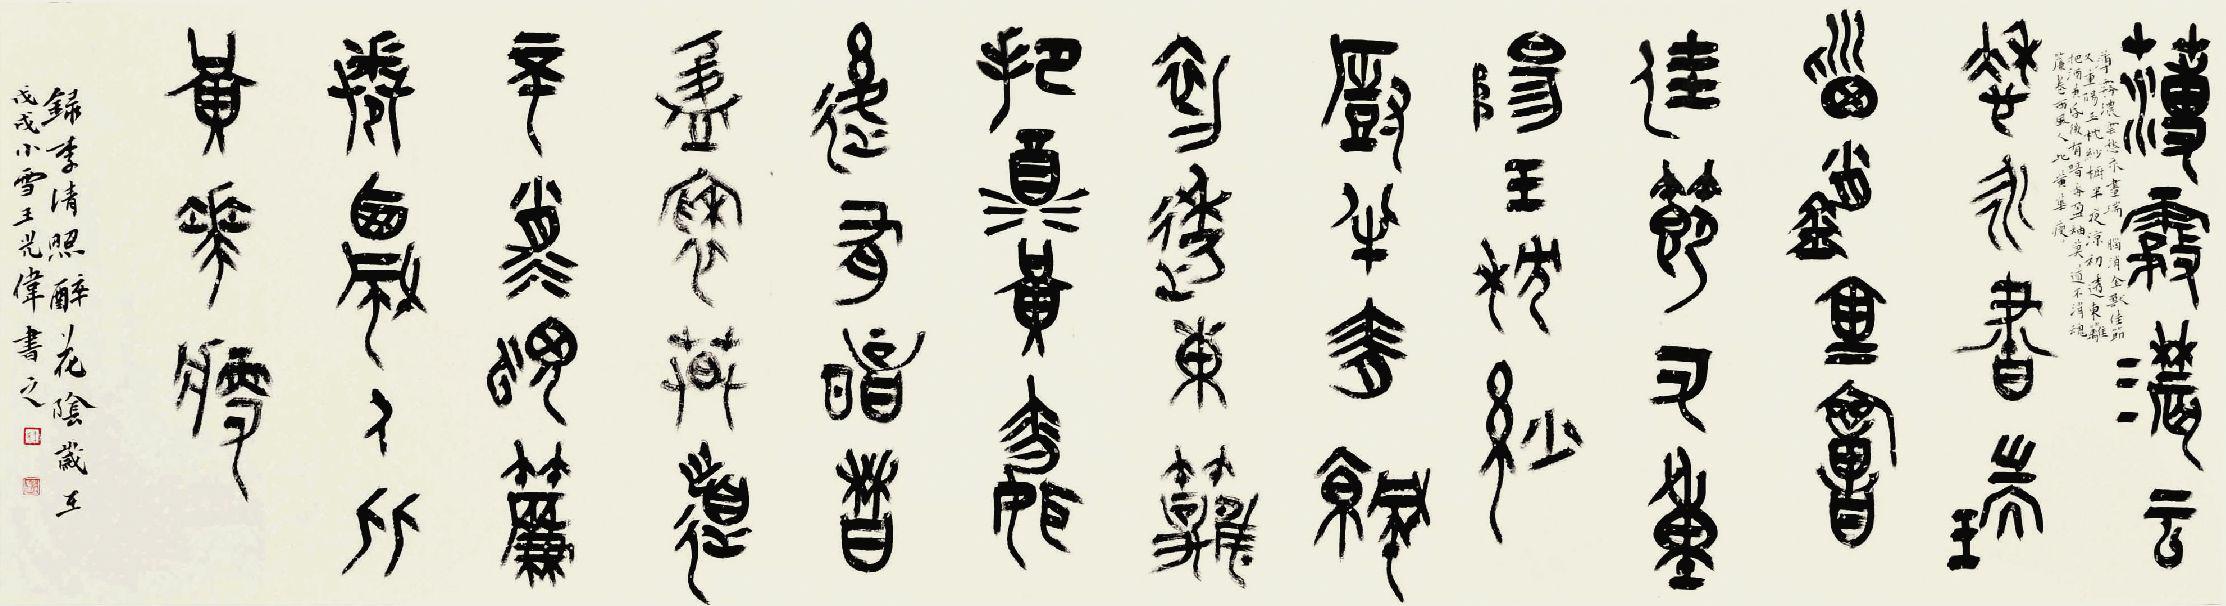 薄霧濃云
愁永晝瑞
腦銷金獸
佳節又重
陽玉枕紗
廚半夜涼
初透東籬
把酒黃昏
後有暗香
盈袖莫道
不消魂簾
捲西風人比
黃華瘦
薄霧濃雲愁永晝瑞腦消金獸佳節
又重陽玉枕紗櫥半夜涼初透東籬
把酒黃昏後有暗香盈袖莫道不消魂
簾卷西風人比黃華瘦
錄李清照醉花陰歲在
戊戌小雪王光偉書之